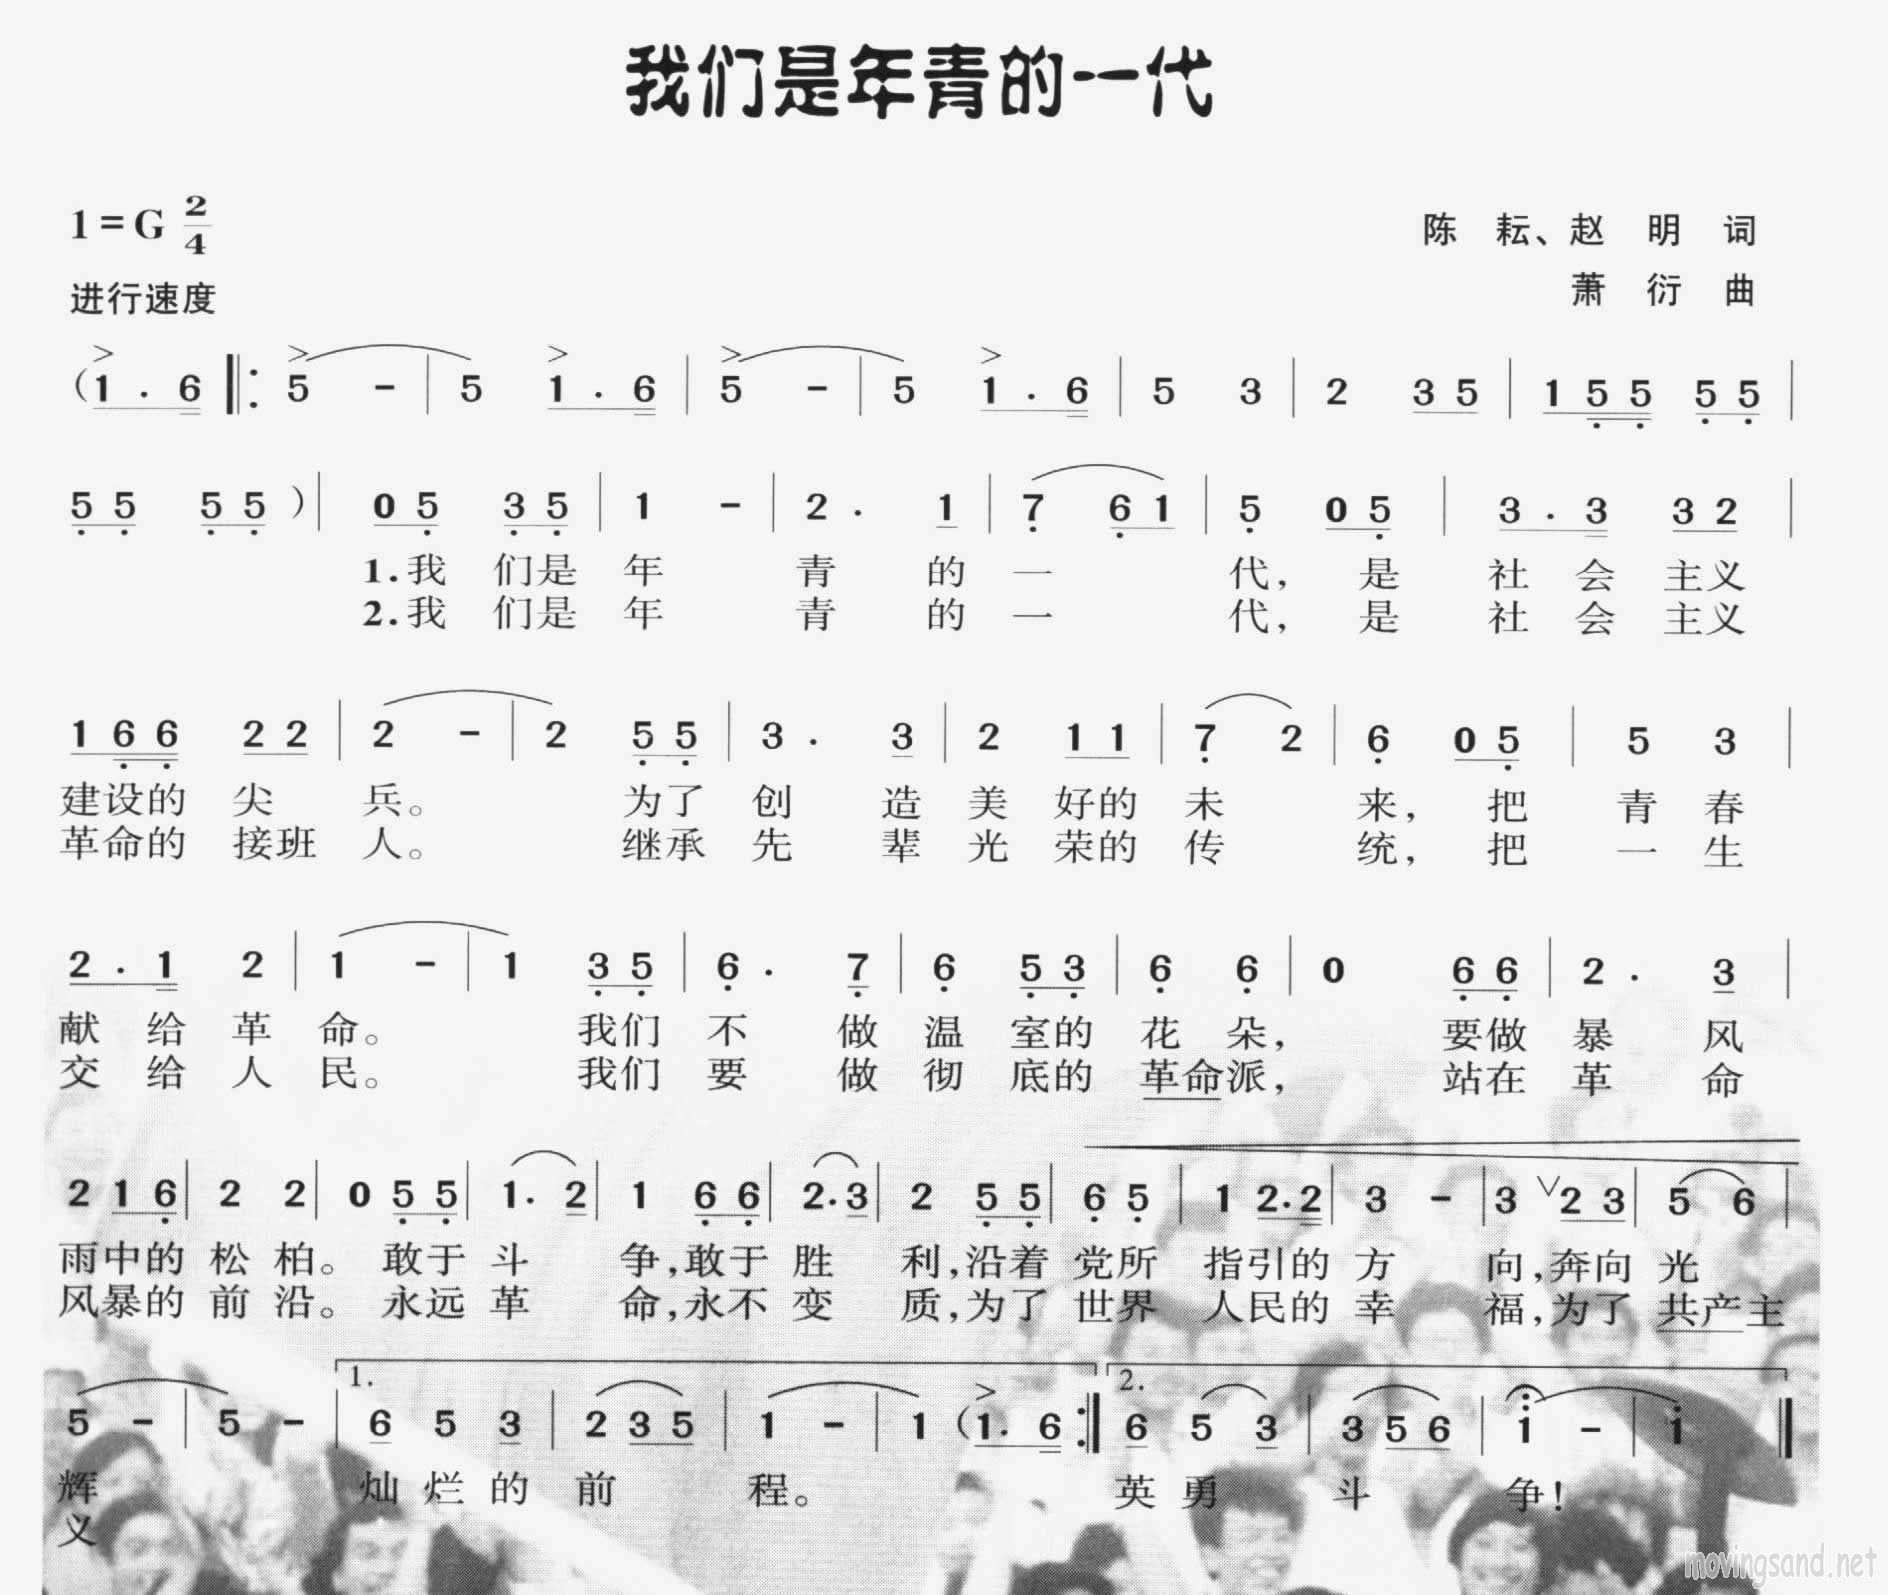 我们是年青的一代
1=G 2/4
陈 耘、赵 明 词
进行速度
萧 衍 曲
(1 . 6 ‖: 5 - | 5 1 . 6 | 5 - | 5 1 . 6 | 5 3 | 2 3 5 | 1 5 5 5 5 |
5 5 5 5 ) | 0 5 3 5 | 1 - | 2 . 1 | 7 6 1 | 5 0 5 | 3 . 3 3 2 |
1.我 们是 年 青 的 一 代, 是 社 会 主义
2.我 们是 年 青 的 一 代, 是 社 会 主义
1 6 6 2 2 | 2 - | 2 5 5 | 3 . 3 | 2 1 1 | 7 2 | 6 0 5 | 5 3 |
建设的 尖 兵。 为了 创 造 美 好的 未 来, 把 青 春
革命的 接班 人。 继承 先 辈 光 荣的 传 统, 把 一 生
2 . 1 2 | 1 - | 1 3 5 | 6 . 7 | 6 5 3 | 6 6 | 0 6 6 | 2 . 3 |
献 给 革 命。 我们 不 做 温 室的 花 朵, 要做 暴 风
交 给 人 民。 我们 要 做 彻 底的 革命派, 站在 革 命
2 1 6 | 2 2 | 0 5 5 | 1 . 2 | 1 6 6 | 2 . 3 | 2 5 5 | 6 5 | 1 2 . 2 | 3 - | 3 ∨ 2 3 | 5 6 |
雨中的 松 柏。 敢于 斗 争,敢于 胜 利,沿着 党所 指引的 方 向,奔向 光
风暴的 前 沿。 永远 革 命,永不 变 质,为了 世界 人民的 幸 福,为了 共产主
1. 2.
5 - | 5 - | 6 5 3 | 2 3 5 | 1 - | 1 (1 . 6 :‖ 6 5 3 | 3 5 6 | 1 - | 1 ‖
辉 灿 烂 的 前 程。 英 勇 斗 争!
义
movingsand.net